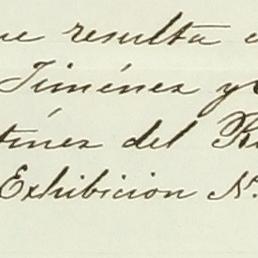 ue resulta
Jiménez y
tínez del R
Exhibicion N.